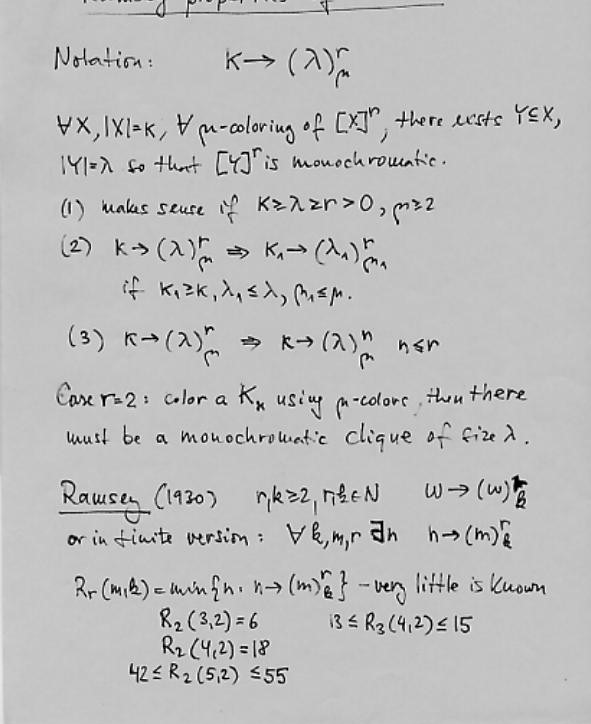 properties
Notation: κ→(λ)^r_μ
∀X, |X|=κ, ∀ μ-coloring of [X]^r, there exists Y⊆X,
|Y|=λ so that [Y]^r is monochromatic.
(1) makes sense if κ≥λ≥r>0, μ≥2
(2) κ→(λ)^r_μ ⇒ κ₁→(λ₁)^r_μ₁
if κ₁≥κ, λ₁≤λ, μ₁≤μ.
(3) κ→(λ)^r_μ ⇒ κ→(λ)^n_μ n≤r
Case r=2: color a K_κ using μ-colors, then there
must be a monochromatic clique of size λ.
Ramsey (1930) r,k≥2, r,k∈N ω→(ω)^r_k
or in finite version: ∀k,m,r ∃n n→(m)^r_k
R_r(m,k)=min{n: n→(m)^r_k} – very little is known
R₂(3,2)=6 13≤R₃(4,2)≤15
R₂(4,2)=18
42≤R₂(5,2)≤55